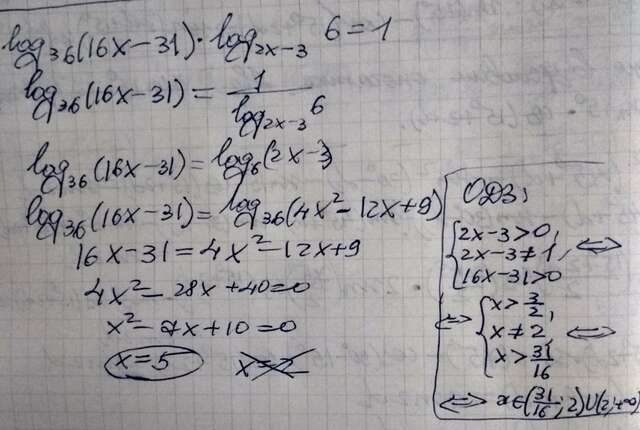 log₃₆(16x−31)·log₂ₓ₋₃ 6=1
log₃₆(16x−31) = 1/(log₂ₓ₋₃ 6)
log₃₆(16x−31)=log₆(2x−3)
log₃₆(16x−31)=log₃₆(4x²−12x+9)
16x−31=4x²−12x+9
4x²−28x+40=0
x²−7x+10=0
x=5 x=2
ОДЗ:
2x−3>0,
2x−3≠1, ⟺
16x−31>0
⟺ x>3/2,
x≠2 ⟺
x>31/16
⟺ x∈(31/16;2)∪(2;+∞)